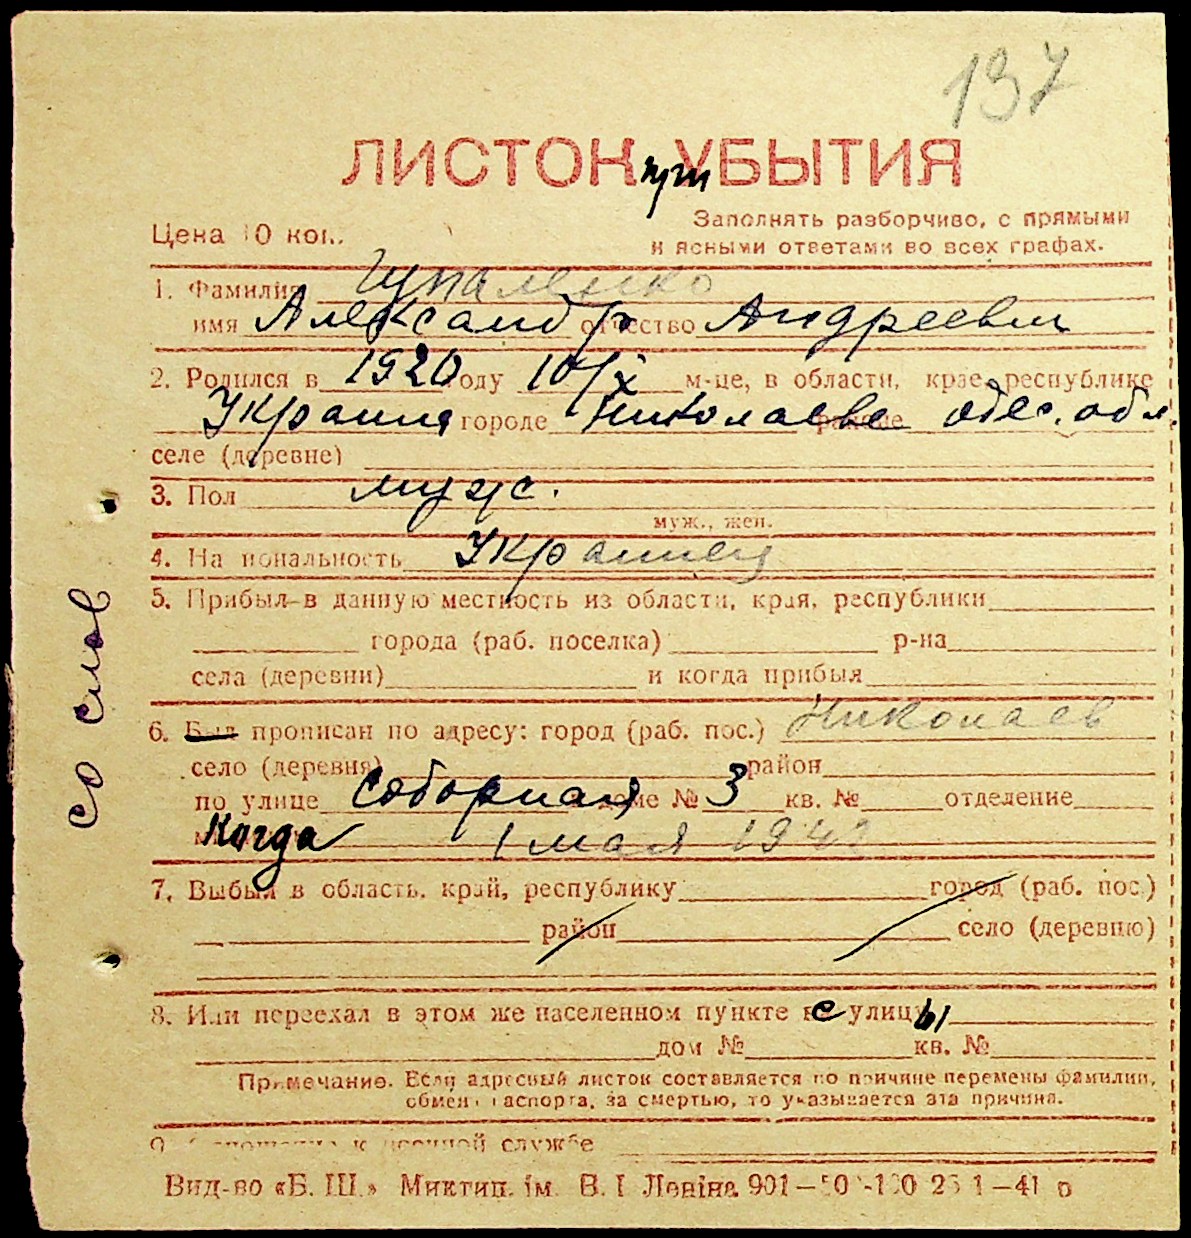 137
ЛИСТОК при УБЫТИЯ
Цена 10 коп.
Заполнять разборчиво, с прямыми
и ясными ответами во всех графах.
1. Фамилия
имя Александр отчество Андреевич
2. Родился в 1920 году 10/X м-це, в области, крае, республике
Украина городе Николаеве районе одес. обл.
селе (деревне)
3. Пол муж.
муж., жен.
4. Национальность Украинец
5. Прибыл в данную местность из области, края, республики
города (раб. поселка) р-на
села (деревни) и когда прибыл
6. Был прописан по адресу: город (раб. пос.) Николаев
село (деревня) район
по улице Соборная доме № 3 кв. № отделение
Когда 1 мая 1942
7. Выбыл в область, край, республику город (раб. пос.)
район село (деревню)
8. Или переехал в этом же населенном пункте с улицы
дом № кв. №
Примечание. Если адресный листок составляется по причине перемены фамилии,
обмена паспорта, за смертью, то указывается эта причина.
9. Отношение к военной службе
Вид-во «Б. Ш.» Миктип. ім. В. І Леніна 901 41 р
со слов